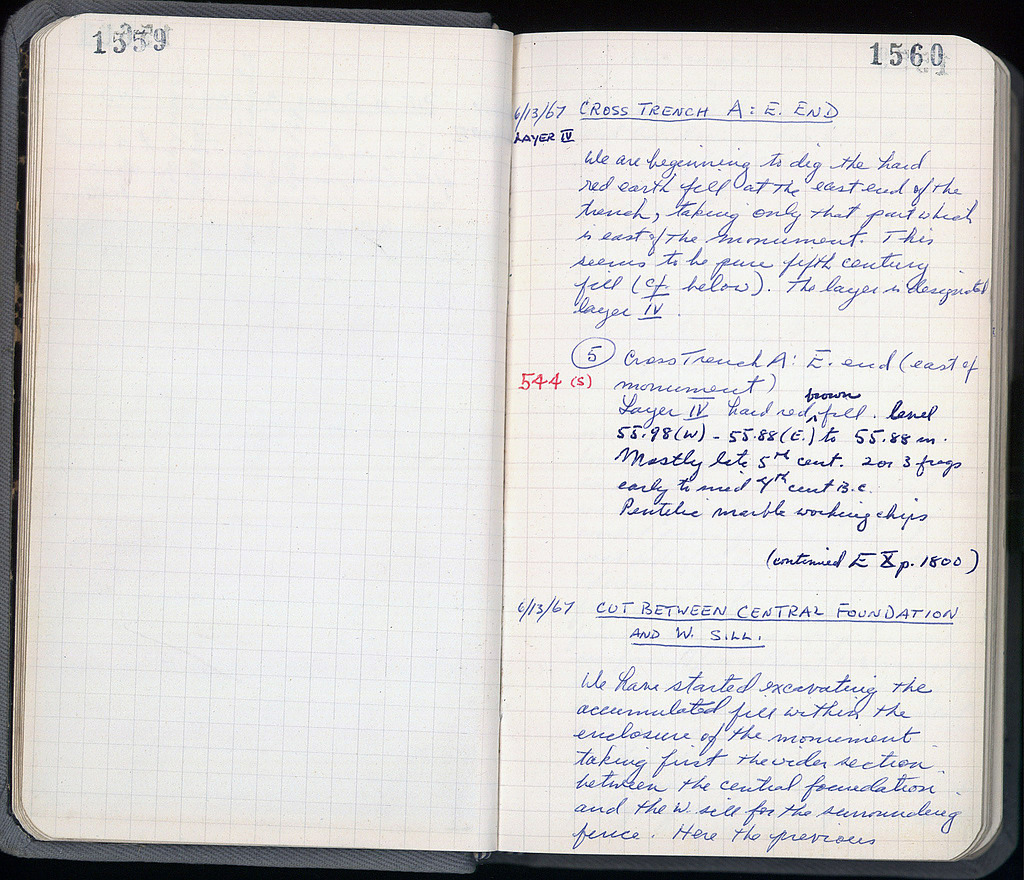 1559
1560
6/13/67 CROSS TRENCH A: E. END
LAYER IV
We are beginning to dig the hard
red earth fill at the east end of the
trench, taking only that part which
is east of the monument. This
seems to be pure fifth century
fill (cf below). The layer is designated
layer IV.
5 Cross Trench A: E. end (east of
544 (S) monument)
brown
Layer IV hard red ^ fill. level
55.98(W) - 55.88(E.) to 55.88 m.
Mostly late 5th cent. 2 or 3 frags
early to mid 4th cent B.C.
Pentelic marble working chips
(continued E X p. 1800)
6/13/67 CUT BETWEEN CENTRAL FOUNDATION
AND W. SILL.
We have started excavating the
accumulated fill within the
enclosure of the monument
taking first the wider section
between the central foundation
and the W. sill for the surrounding
fence. Here the previous